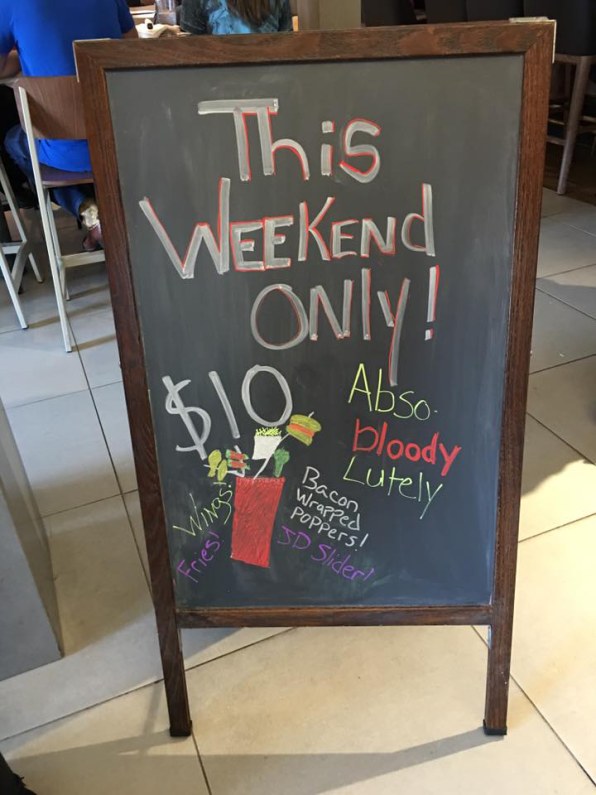 This
WEEKEND
ONLY!
$10
Abso-
bloody
Lutely
Wings!
Fries!
Bacon
Wrapped
Poppers!
JD Slider!